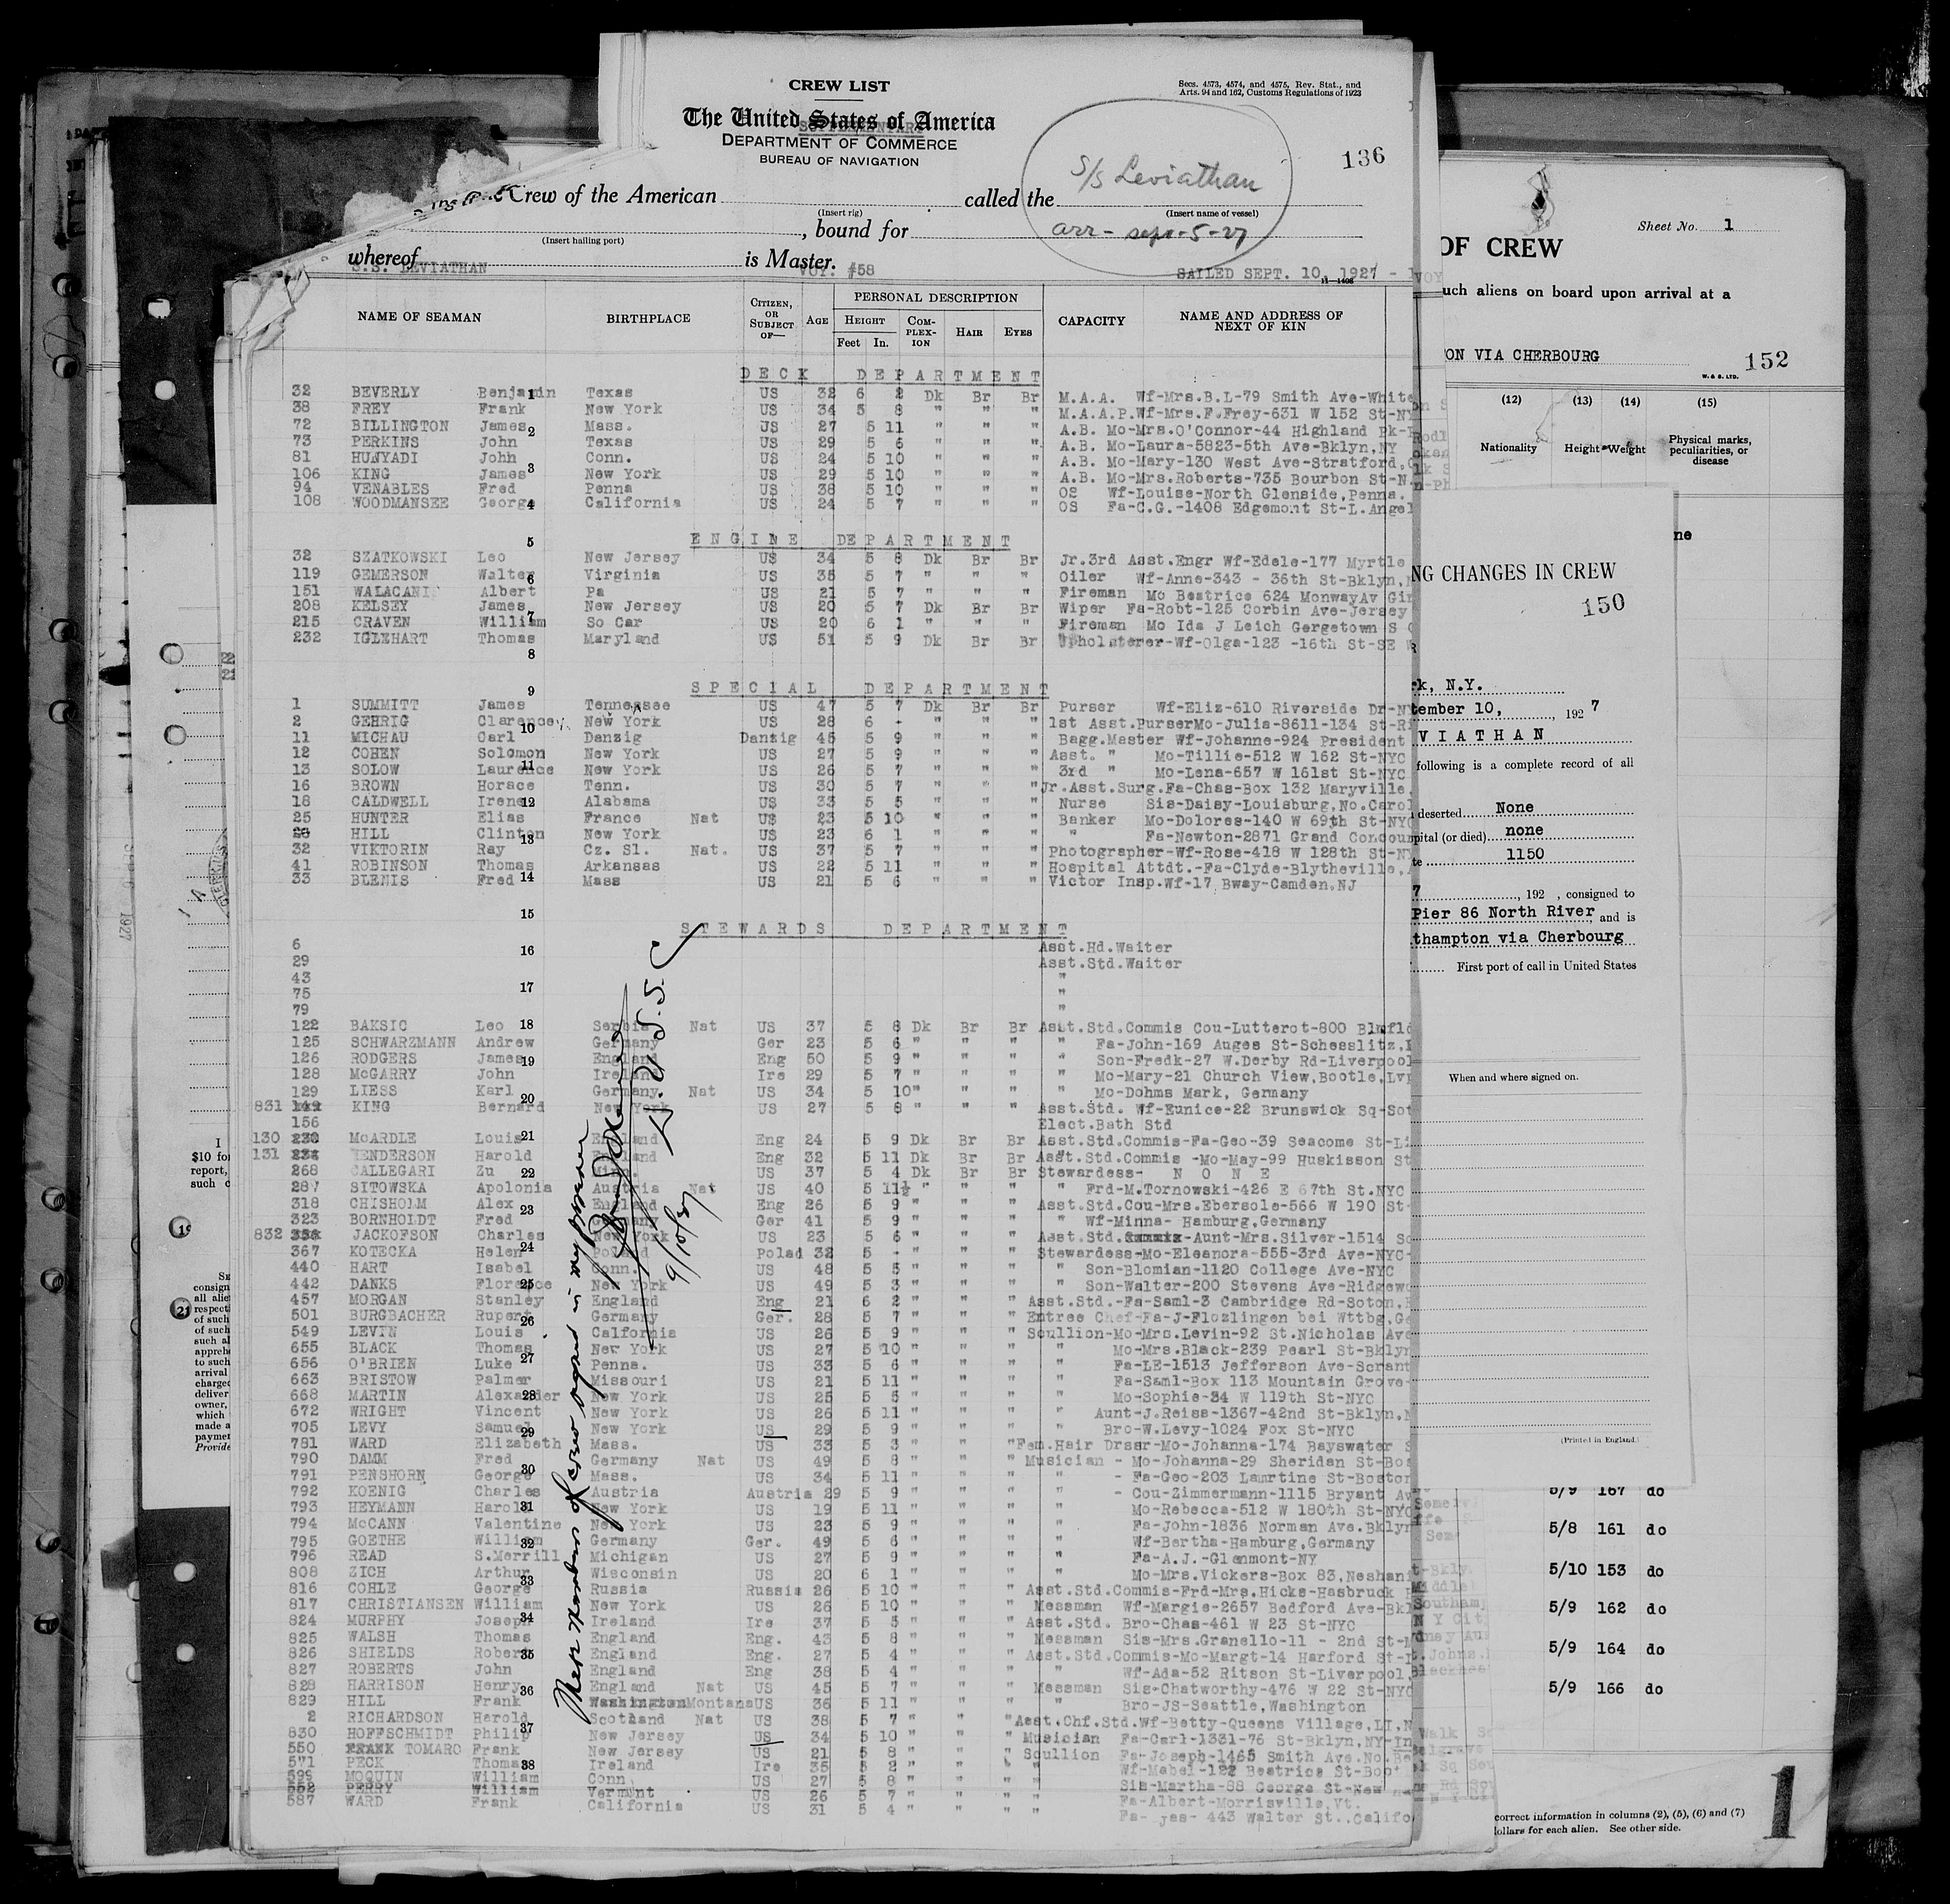 CREW LIST
Secs. 4573, 4574, and 4575, Rev. Stat., and
Arts. 94 and 162, Customs Regulations of 1923
The United States of America
SUPPLEMENTARY
DEPARTMENT OF COMMERCE
BUREAU OF NAVIGATION
136
Crew of the American called the S/S Leviathan
(Insert rig) (Insert name of vessel)
, bound for arr- sept-5-27
(Insert hailing port)
whereof is Master.
S.S. LEVIATHAN VOY. #58 SAILED SEPT. 10, 1927 -
11-1406
NAME OF SEAMAN BIRTHPLACE CITIZEN, OR SUBJECT OF— AGE PERSONAL DESCRIPTION CAPACITY NAME AND ADDRESS OF NEXT OF KIN
HEIGHT COMPLEXION HAIR EYES
Feet In.
DECK DEPARTMENT
32 BEVERLY Benjamin Texas US 32 6 2 Dk Br Br M.A.A. Wf-Mrs.B.L-79 Smith Ave-White
38 FREY Frank New York US 34 5 8 " " " M.A.A.P.Wf-Mrs.F.Frey-631 W 152 St-NY
72 BILLINGTON James Mass. US 27 5 11 " " " A.B. Mo-Mrs.O'Connor-44 Highland Pk-
73 PERKINS John Texas US 29 5 6 " " " A.B. Mo-Laura-5823-5th Ave-Bklyn,NY
81 HUNYADI John Conn. US 24 5 10 " " " A.B. Mo-Mary-130 West Ave-Stratford,
106 KING James New York US 29 5 10 " " " A.B. Mo-Mrs.Roberts-735 Bourbon St-N.
94 VENABLES Fred Penna US 38 5 10 " " " OS Wf-Louise-North Glenside,Penna.
108 WOODMANSEE George California US 24 5 7 " " " OS Fa-C.G.-1408 Edgemont St-L.Angel
ENGINE DEPARTMENT
32 SZATKOWSKI Leo New Jersey US 34 5 8 Dk Br Br Jr.3rd Asst.Engr Wf-Edele-177 Myrtle
119 GEMERSON Walter Virginia US 35 5 7 " " " Oiler Wf-Anne-343 - 36th St-Bklyn,
151 WALACANI Albert Pa US 21 5 7 " " " Fireman Mo Beatrice 624 MonwayAv Gir
208 KELSEY James New Jersey US 20 5 7 Dk Br Br Wiper Fa-Robt-125 Corbin Ave-Jersey
215 CRAVEN William So Car US 20 6 1 " " " Fireman Mo Ida J Leich Gergetown S
232 IGLEHART Thomas Maryland US 51 5 9 Dk Br Br Upholsterer-Wf-Olga-123 -16th St-SE
SPECIAL DEPARTMENT
1 SUMMITT James Tennessee US 47 5 7 Dk Br Br Purser Wf-Eliz-610 Riverside Dr-N
2 GEHRIG Clarence New York US 28 6 - " " " 1st Asst.PurserMo-Julia-8611-134 St-Ri
11 MICHAU Carl Danzig Danzig 45 5 9 " " " Bagg.Master Wf-Johanne-924 President
12 COHEN Solomon New York US 27 5 9 " " " Asst. " Mo-Tillie-512 W 162 St-NYC
13 SOLOW Laurence New York US 26 5 7 " " " 3rd " Mo-Lena-657 W 161st St-NYC
16 BROWN Horace Tenn. US 30 5 7 " " " Jr.Asst.Surg.Fa-Chas-Box 132 Maryville,
18 CALDWELL Irene Alabama US 33 5 5 " " " Nurse Sis-Daisy-Louisburg,No.Carol
25 HUNTER Elias France Nat US 23 5 10 " " " Banker Mo-Dolores-140 W 69th St-NYC
26 HILL Clinton New York US 23 6 1 " " " " Fa-Newton-2871 Grand Concour
32 VIKTORIN Ray Cz. Sl. Nat. US 37 5 7 " " " Photographer-Wf-Rose-418 W 128th St-NY
41 ROBINSON Thomas Arkansas US 22 5 11 " " " Hospital Attdt.-Fa-Clyde-Blytheville,
33 BLENIS Fred Mass US 21 5 6 " " " Victor Insp.Wf-17 Bway-Camden,NJ
STEWARDS DEPARTMENT
6 Asst.Hd.Waiter
29 Asst.Std.Waiter
43 "
75 "
79 "
122 BAKSIC Leo Serbia Nat US 37 5 8 Dk Br Br Asst.Std.Commis Cou-Lutterot-800 Blmfld
125 SCHWARZMANN Andrew Germany Ger 23 5 6 " " " " Fa-John-169 Auges St-Schesslitz,
126 RODGERS James England Eng 50 5 9 " " " " Son-Fredk-27 W.Derby Rd-Liverpool
128 McGARRY John Ireland Ire 29 5 7 " " " " Mo-Mary-21 Church View,Bootle,Lvp
129 LIESS Karl Germany Nat US 34 5 10 " " " " Mo-Dohms Mark, Germany
831 KING Bernard New York US 27 5 8 " " " Asst.Std. Wf-Eunice-22 Brunswick Sq-Sot
156 Elect.Bath Std
130 McARDLE Louis England Eng 24 5 9 Dk Br Br Asst.Std.Commis-Fa-Geo-39 Seacome St-Li
131 HENDERSON Harold England Eng 32 5 11 Dk Br Br Asst.Std.Commis -Mo-May-99 Huskisson St
268 CALLEGARI Zu US 37 5 4 Dk Br Br Stewardess- N O N E
287 SITOWSKA Apolonia Austria Nat US 40 5 11½ " " " " Frd-M.Tornowski-426 E 67th St.NYC
318 CHISHOLM Alex England Eng 26 5 9 " " " Asst.Std.Cou-Mrs.Ebersole-566 W 190 St-
323 BORNHOLDT Fred Germany Ger 41 5 9 " " " " Wf-Minna- Hamburg,Germany
832 JACKOFSON Charles New York US 23 5 6 " " " Asst.Std.-Aunt-Mrs.Silver-1514 So
367 KOTECKA Helen Poland Polad 32 5 - " " " Stewardess-Mo-Eleanora-555-3rd Ave-NYC-
440 HART Isabel Conn. US 48 5 5 " " " " Son-Blomian-1120 College Ave-NYC
442 DANKS Florence New York US 49 5 3 " " " " Son-Walter-200 Stevens Ave-Ridgewo
457 MORGAN Stanley England Eng 21 6 2 " " " Asst.Std.-Fa-Saml-3 Cambridge Rd-Soton,
501 BURGBACHER Rupert Germany Ger. 28 5 7 " " " Entree Chef-Fa-J-Flozlingen bei Wttbg,Ge
549 LEVIN Louis Calfornia US 26 5 9 " " " Scullion-Mo-Mrs.Levin-92 St.Nicholas Ave
655 BLACK Thomas New York US 27 5 10 " " " " Mo-Mrs.Black-239 Pearl St-Bklyn
656 O'BRIEN Luke Penna. US 33 5 6 " " " " Fa-LE-1513 Jefferson Ave-Scrant
663 BRISTOW Palmer Missouri US 21 5 11 " " " " Fa-Saml-Box 113 Mountain Grove-
668 MARTIN Alexander New York US 25 5 5 " " " " Mo-Sophie-34 W 119th St-NYC
672 WRIGHT Vincent New York US 26 5 11 " " " " Aunt-J.Reiss-1367-42nd St-Bklyn,
705 LEVY Samuel New York US 29 5 9 " " " " Bro-W.Levy-1024 Fox St-NYC
781 WARD Elizabeth Mass. US 33 5 3 " " " Fem.Hair Drssr-Mo-Johanna-174 Bayswater S
790 DAMM Fred Germany Nat US 49 5 8 " " " Musician - Mo-Johanna-29 Sheridan St-Bos
791 PENSHORN George Mass. US 34 5 11 " " " " - Fa-Geo-203 Lamrtine St-Boston
792 KOENIG Charles Austria Austria 29 5 9 " " " " - Cou-Zimmermann-1115 Bryant Av
793 HEYMANN Harold New York US 19 5 11 " " " " Mo-Rebecca-512 W 180th St-NYC
794 McCANN Valentine New York US 23 5 9 " " " " Fa-John-1836 Norman Ave.Bklyn
795 GOETHE William Germany Ger. 49 5 6 " " " " Wf-Bertha-Hamburg,Germany
796 READ S.Merrill Michigan US 27 5 9 " " " " Fa-A.J.-Glenmont-NY
808 ZICH Arthur Wisconsin US 20 6 1 " " " " Mo-Mrs.Vickers-Box 83,Neshani
816 COHLE George Russia Russia 26 5 10 " " " Asst.Std.Commis-Frd-Mrs.Hicks-Hasbruck
817 CHRISTIANSEN William New York US 26 5 10 " " " Messman Wf-Margie-2657 Bedford Ave-Bkl
824 MURPHY Joseph Ireland Ire 37 5 5 " " " Asst.Std. Bro-Chas-461 W 23 St-NYC
825 WALSH Thomas England Eng. 43 5 8 " " " Messman Sis-Mrs.Granello-11 - 2nd St-
826 SHIELDS Robert England Eng. 27 5 4 " " " Asst.Std.Commis-Mo-Margt-14 Harford St-
827 ROBERTS John England Eng 38 5 4 " " " " Wf-Ada-52 Ritson St-Liverpool
828 HARRISON Henry England Nat US 45 5 7 " " " Messman Sis-Chatworthy-476 W 22 St-NYC
829 HILL Frank Washington Montana US 36 5 11 " " " " Bro-JS-Seattle,Washington
2 RICHARDSON Harold Scotland Nat US 38 5 7 " " " Asst.Chf.Std.Wf-Betty-Queens Village,LI,N
830 HOFFSCHMIDT Philip New Jersey US 34 5 10 " " " Musician Fa-Carl-1331-76 St-Bklyn,NY-In
550 FRANK TOMARO Frank New Jersey US 21 5 8 " " " Scullion Fa-Joseph-1465 Smith Ave.No.Be
571 PECK Thomas Ireland Ire 35 5 2 " " " " Wf-Mabel-122 Beatrice St-Boot
599 MOQUIN William Conn. US 27 5 8 " " " Sis-Martha-88 George St-New
552 PERRY William Vermont US 26 5 7 " " " Fa-Albert-Morrisville,Vt.
587 WARD Frank California US 31 5 4 " " " Fa- Jas- 443 Walter St..Califo
1
2
3
4
5
6
7
8
9
10
11
12
13
14
15
16
17
18
19
20
21
22
23
24
25
26
27
28
29
30
31
32
33
34
35
36
37
38
These members of crew signed in my presence
9/10/27
Sheet No. 1
OF CREW
uch aliens on board upon arrival at a
ON VIA CHERBOURG
152
W. & S. LTD.
(12) (13) (14) (15)
Nationality Height Weight Physical marks, peculiarities, or disease
ne
NG CHANGES IN CREW
150
rk, N.Y.
tember 10, , 192 7
VIATHAN
following is a complete record of all
deserted None
pital (or died) none
te 1150
7 , 192 , consigned to
Pier 86 North River, and is
thampton via Cherbourg
First port of call in United States
When and where signed on.
(Printed in England.)
5/9 167 do
5/8 161 do
5/10 153 do
5/9 162 do
5/9 164 do
5/9 166 do
correct information in columns (2), (5), (6) and (7)
dollars for each alien. See other side.
1
I
$10 for
report,
such
consign
all alie
respecti
of such
of such
such al
appreh
to such
arrival
charged
deliver
owner,
which
made a
paymen
Provide
19
21
1927